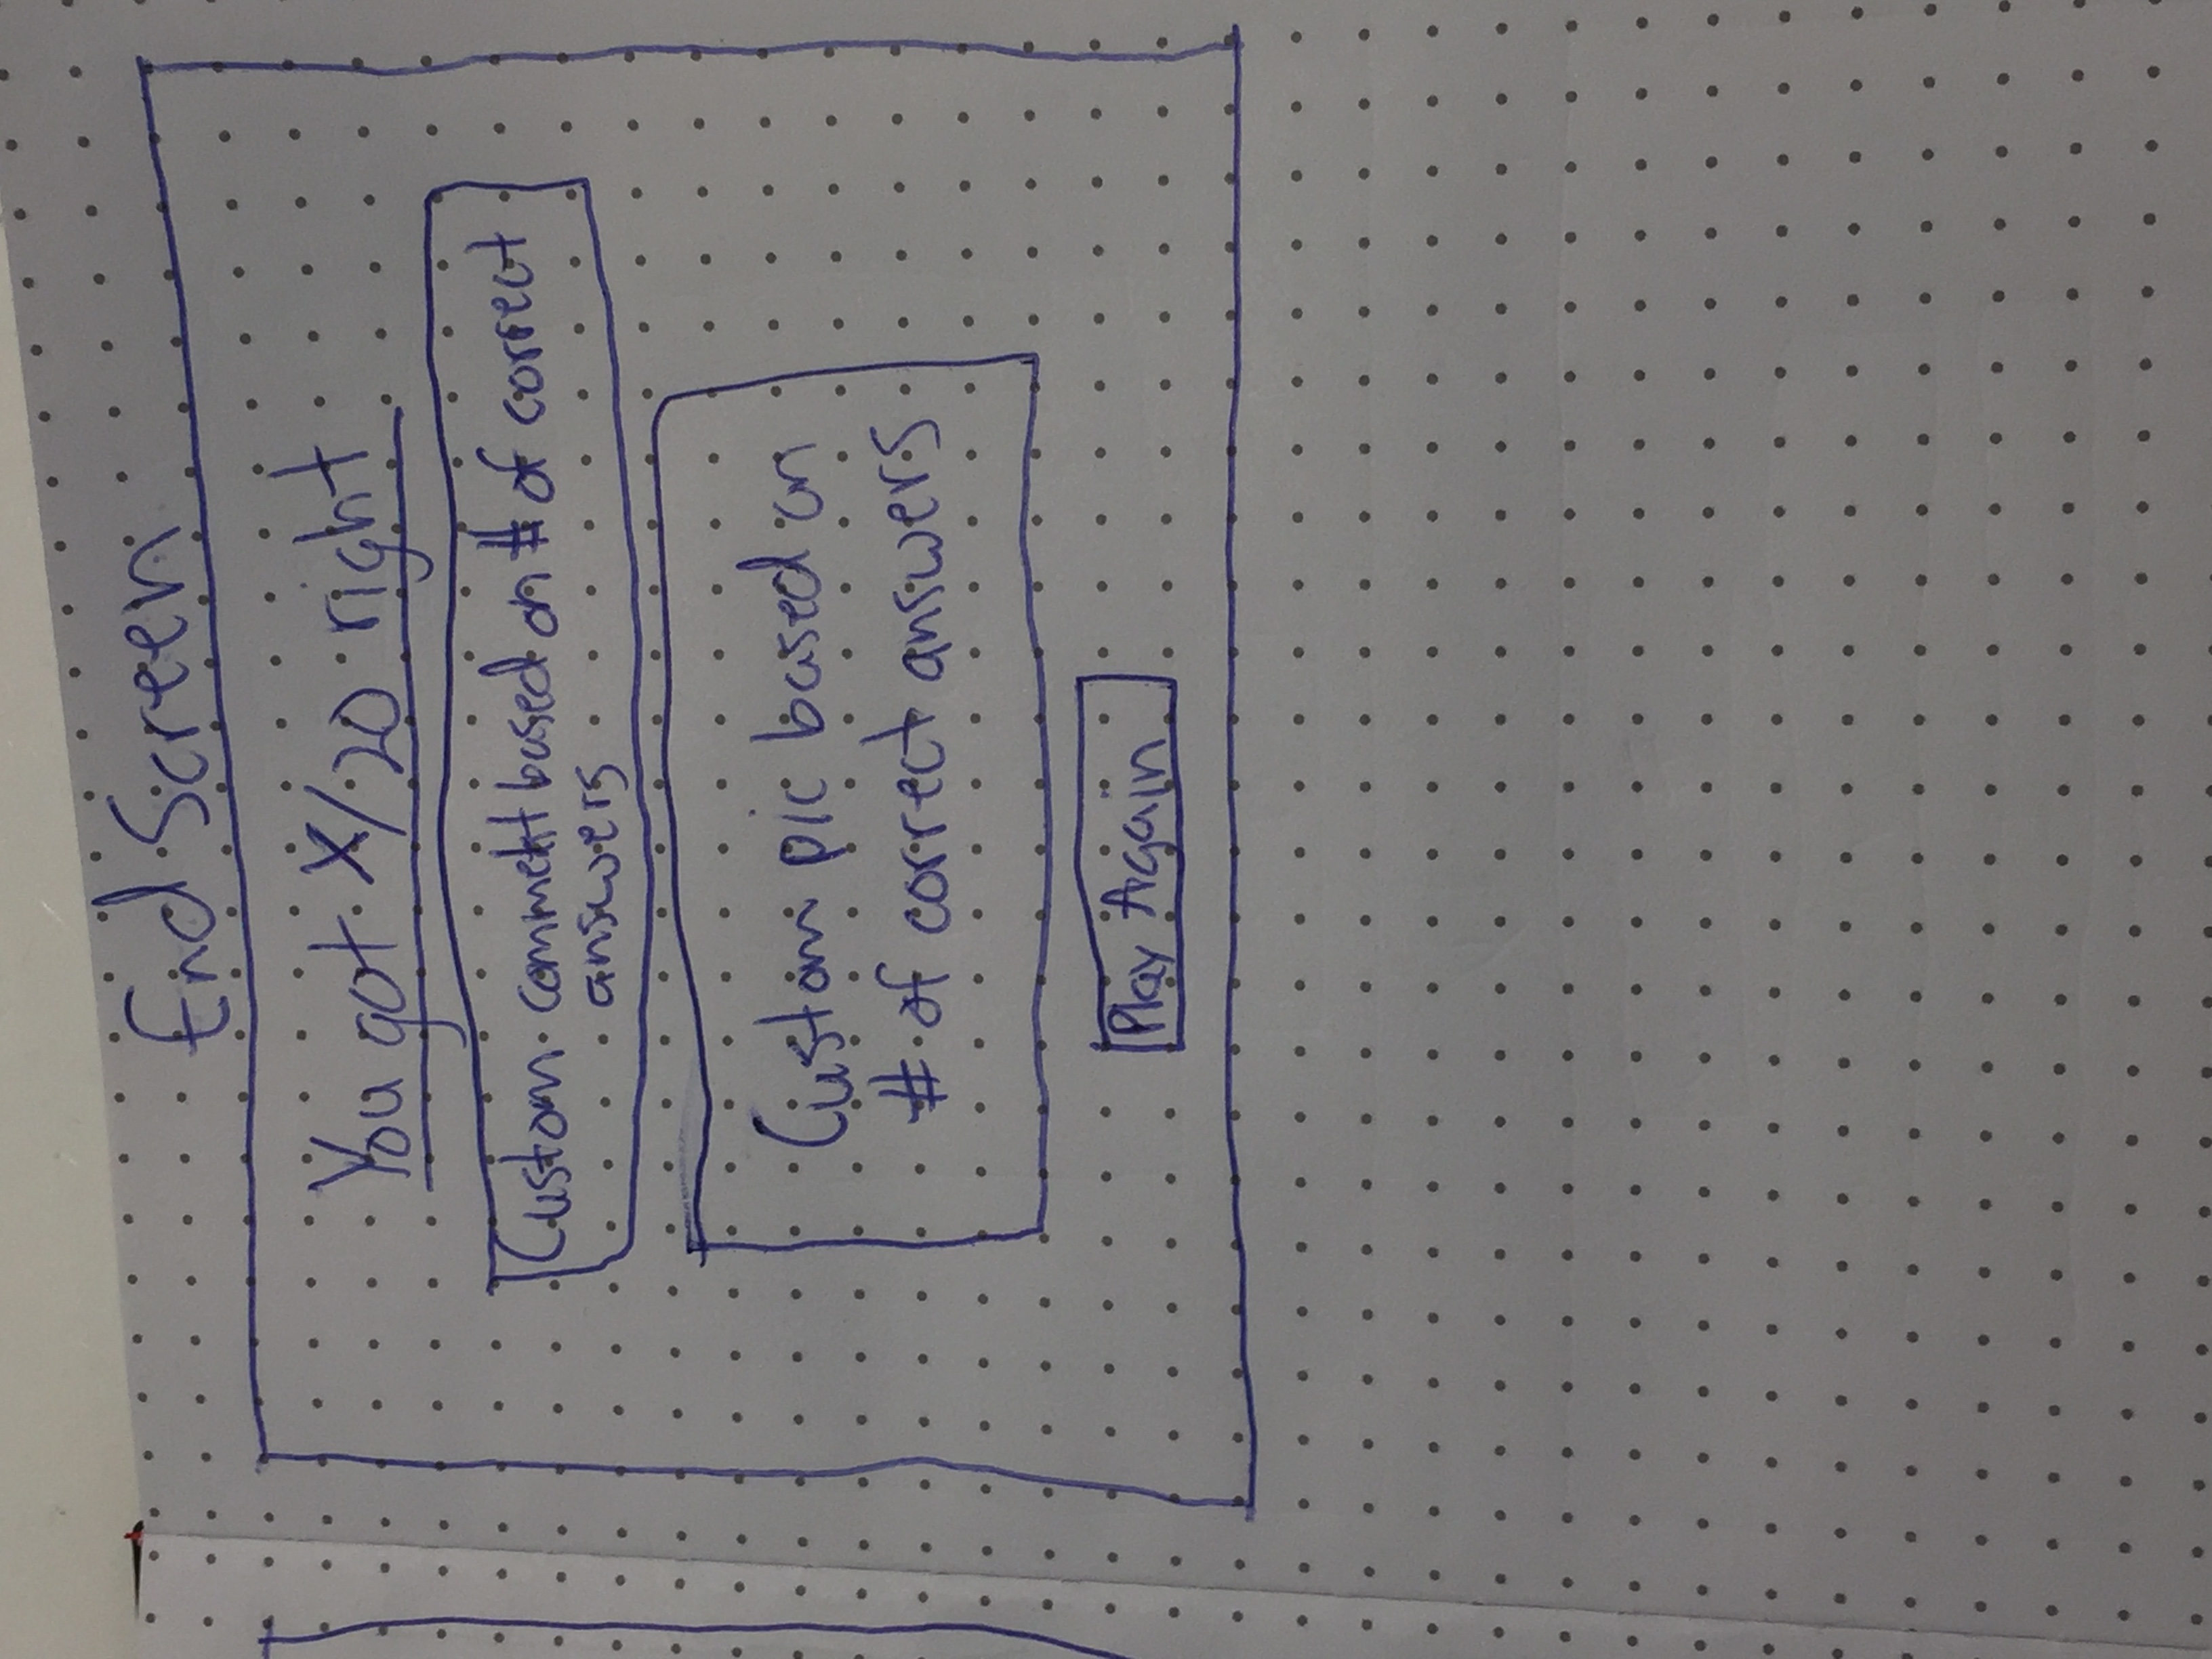 End Screen
You got X/20 right
Custom comment based on # of correct
answers
Custom pic based on
# of correct answers
Play Again